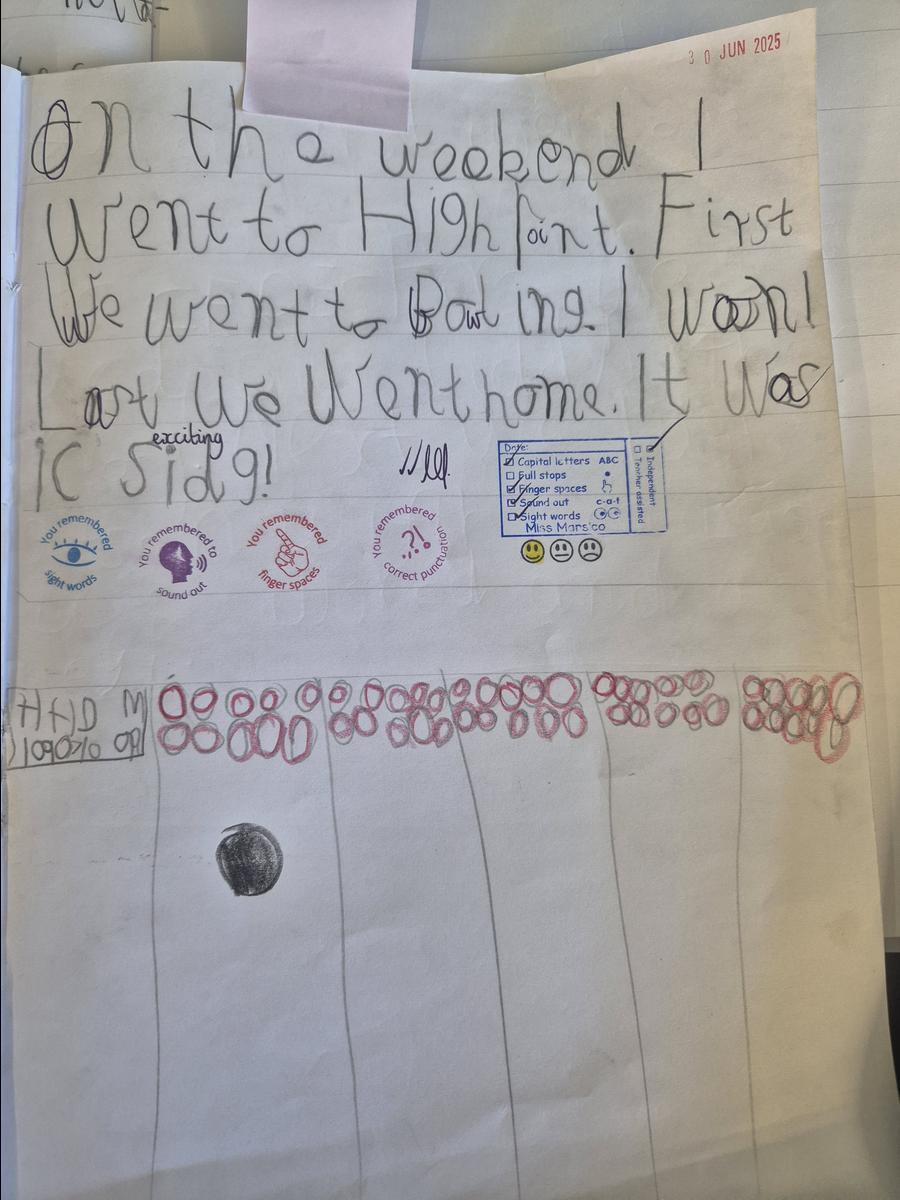 30 JUN 2025
On the weekend I
went to High Point. First
We went to Bowling. I woon!
Last We Went home. It Was
exciting
ic Sidg!
Date:
Capital letters ABC
Full stops
Finger spaces
Sound out c-a-t
Sight words
Miss Marsico
Independent
Teacher assisted
You remembered
sight words
You remembered to
sound out
You remembered
finger spaces
You remembered
correct punctuation